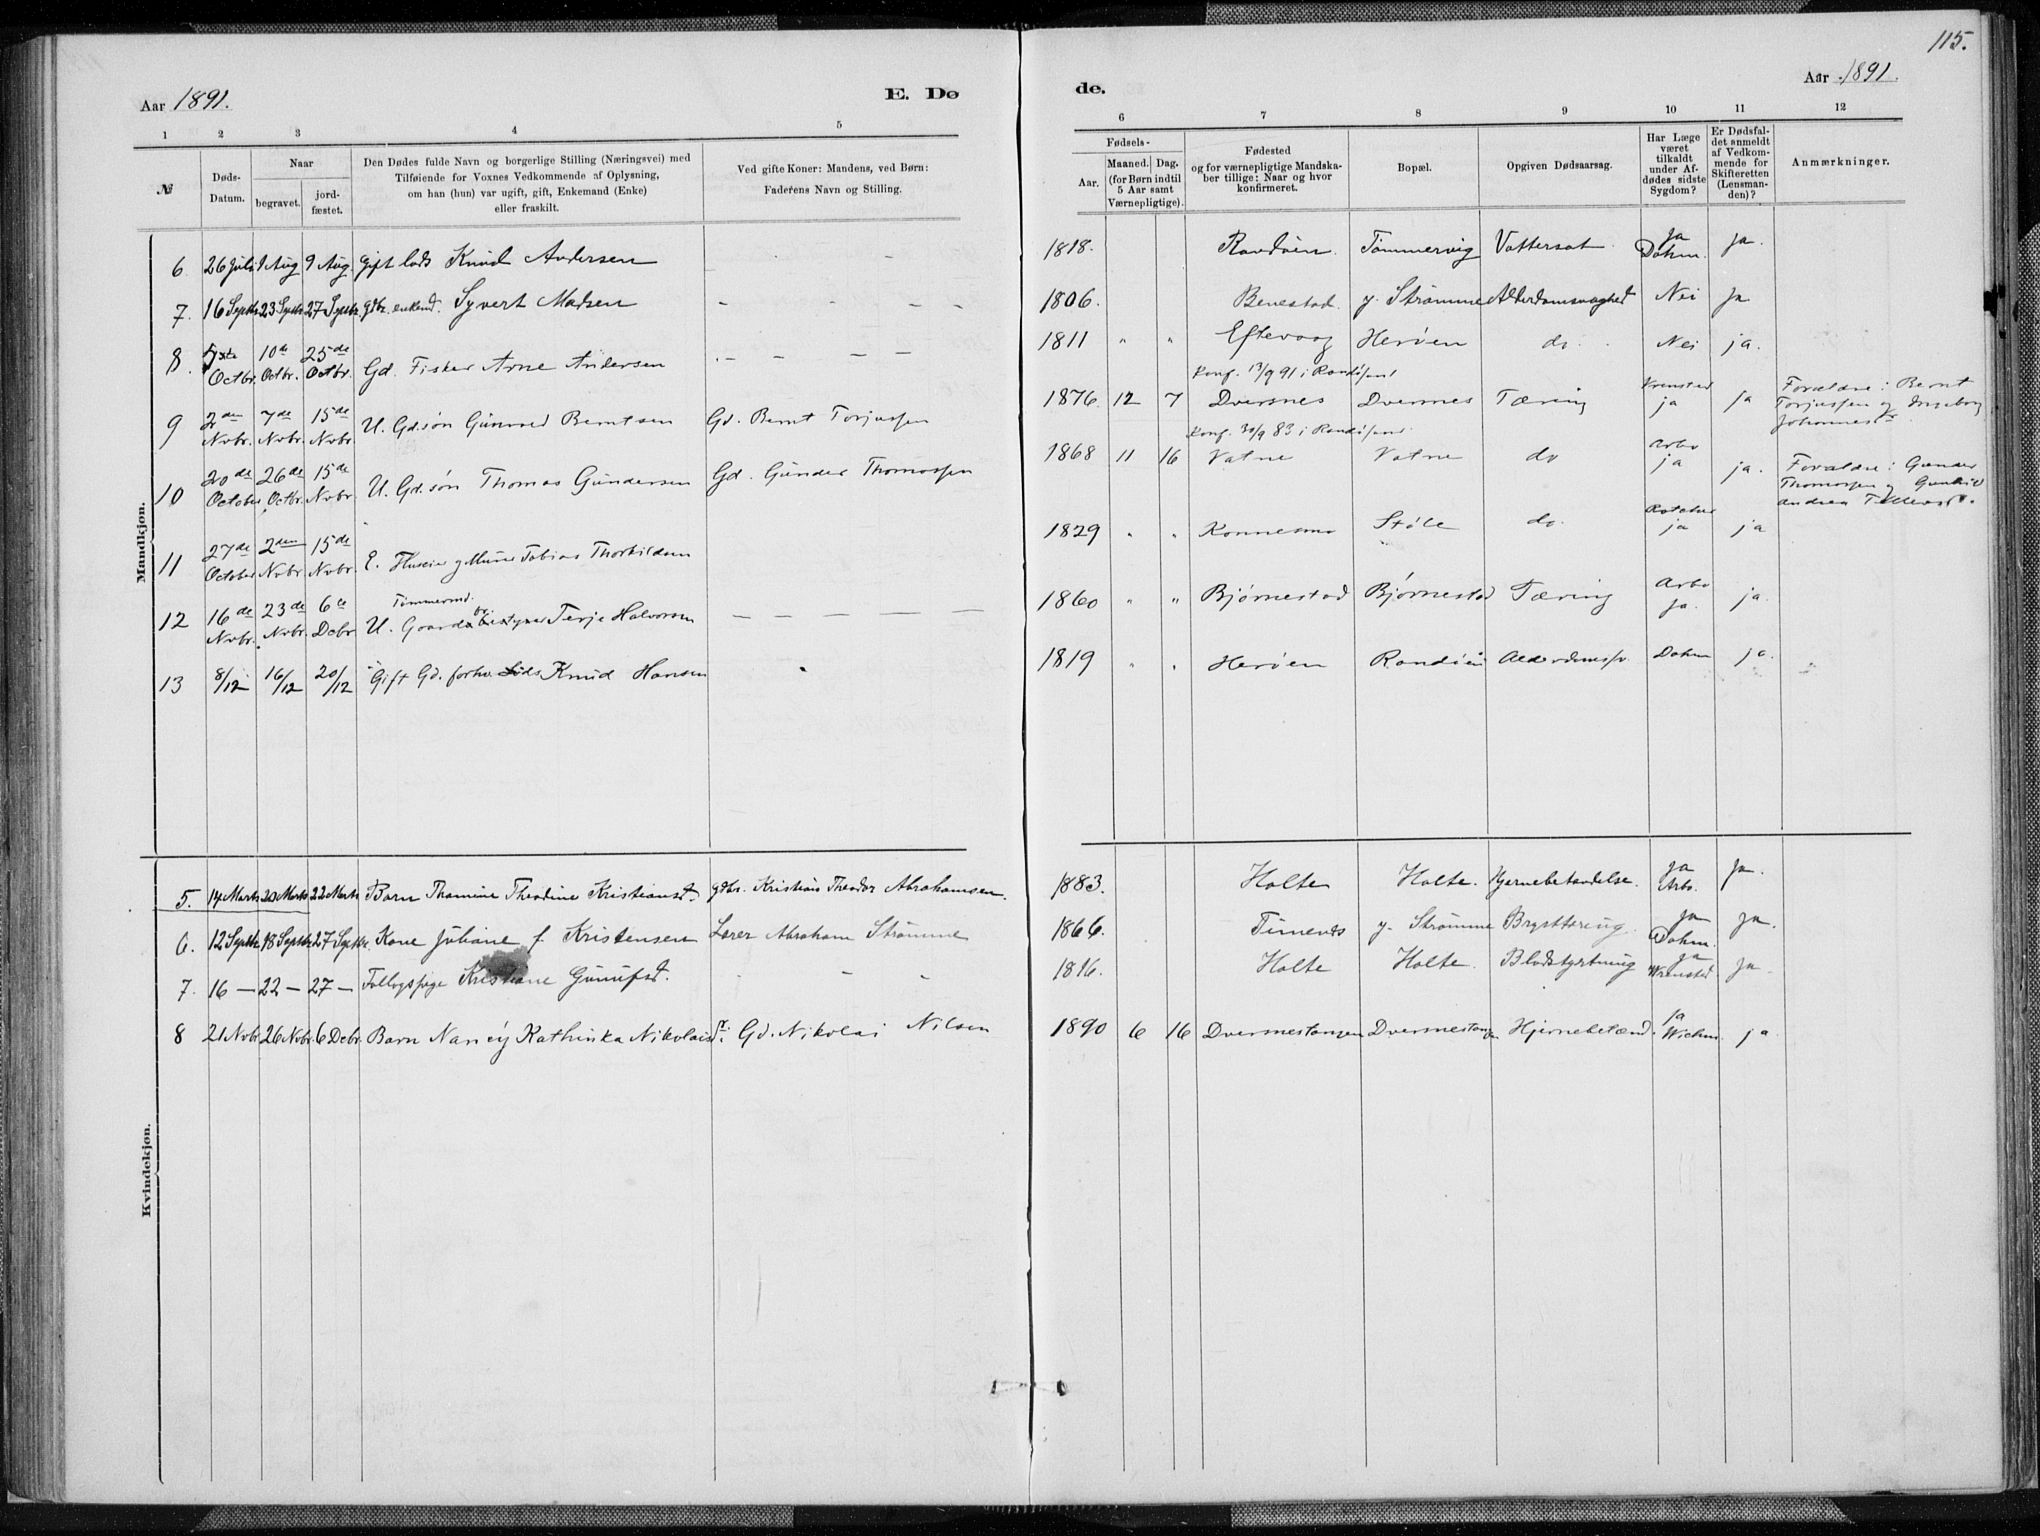 115.
Aar 1891.
E. Dø
de.
Aar 1891.
1 2 3 4 5
6 7 8 9 10 11 12
№
Døds-
Datum.
Naar
begravet.
jord-
fæstet.
Den Dødes fulde Navn og borgerlige Stilling (Næringsvei) med
Tilføiende for Voxnes Vedkommende af Oplysning,
om han (hun) var ugift, gift, Enkemand (Enke)
eller fraskilt.
Ved gifte Koner: Mandens, ved Børn:
Faderens Navn og Stilling.
Fødsels-
Aar.
Maaned. Dag.
(for Børn indtil
5 Aar samt
Værnepligtige).
Fødested
og for værnepligtige Mandska-
ber tillige: Naar og hvor
konfirmeret.
Bopæl.
Opgiven Dødsaarsag.
Har Læge
været
tilkaldt
under Af-
dødes sidste
Sygdom?
Er Dødsfal-
det anmeldt
af Vedkom-
mende for
Skifteretten
(Lensman-
den)?
Anmærkninger.
Mandkjøn.
6. 26 Juli 1 Aug 9 Aug gift lods Knud Andersen - - - 1818. Randøen Tømmervig Vattersot Ja Dahm. Ja.
7. 16 Septbr 23 Septbr 27 Septbr. gdbr. enkemd. Syvert Madsen - - - - 1806. Benestad y. Strømme Alderdomssvaghed Nei Ja
8. Octbr. 10de Octbr. 25de Octbr. Gd. Fisker Arne Andersen - - - - 1811 " " Eftevaag Herøen do. Nei ja.
Konf. 13/9 91 i Randøsund
9 2den Nvbr. 7de Nvbr. 15de Nvbr. U. Gd.søn Gunvard Berntsen Gd. Bernt Torjussen 1876. 12 7 Dversnes Dversnes Tæring Wrensted ja ja Forældre: Bernt Torjussen og Ingeborg Johannesdr.
Konf. 30/9 83 i Randøsund.
10 20de October 26de Octbr. 15de Nvbr. U. Gd.søn Thomas Gundersen Gd. Gunder Thomassen 1868 11 16 Vatne Vatne do Arbo ja ja. Forældre: Gunder Thomassen og Gunhild Andrea
11 27de October 2den Nvbr. 15de Nvbr. E. Huseier og Murer Tobias Thorkildsen 1829 " " Konnesmo Støle do. ja ja
12 16de Nvbr. 23de Nvbr. 6te Debr. Tømmermd. U. Gaardbestyrer Terje Halvorsen - - - - 1860 " " Bjørnestad Bjørnestad Tæring Arbo ja. ja.
13 8/12 16/12 20/12 Gift Gd. forhv. Lods Knud Hansen 1819 " " Herøen Randøen Alderdomssv. Dahm ja.
Kvindekjøn.
5. 14 Marts 20 Marts 22 Marts Barn Thomine Theodine Kristiansdt. gdbr. Kristian Theodor Abrahamsen. 1883. Holte Holte. Hjernebetændelse. Ja Arbo. Ja.
6. 12 Septbr. 18 Septbr. 27 Septbr. Kone Juliane f. Kristensen Lærer Abraham Strømme 1866. Timenes y. Strømme Brysttæring. Ja Dahm. Ja.
7. 16 - 22 - 27 - Kristiane Gunufsdt. - - - 1816. Holte Holte. Blodstyrtning Ja Wrensted Ja.
8 21 Nvbr. 26 Nvbr. 6 Debr. Barn Nancy Kathinka Nikolaisdtr. Gd. Nikolai Nilsen 1890 6 16 Dversnestangen Dversnestangen Hjernebetænd. ja Wichm. ja.